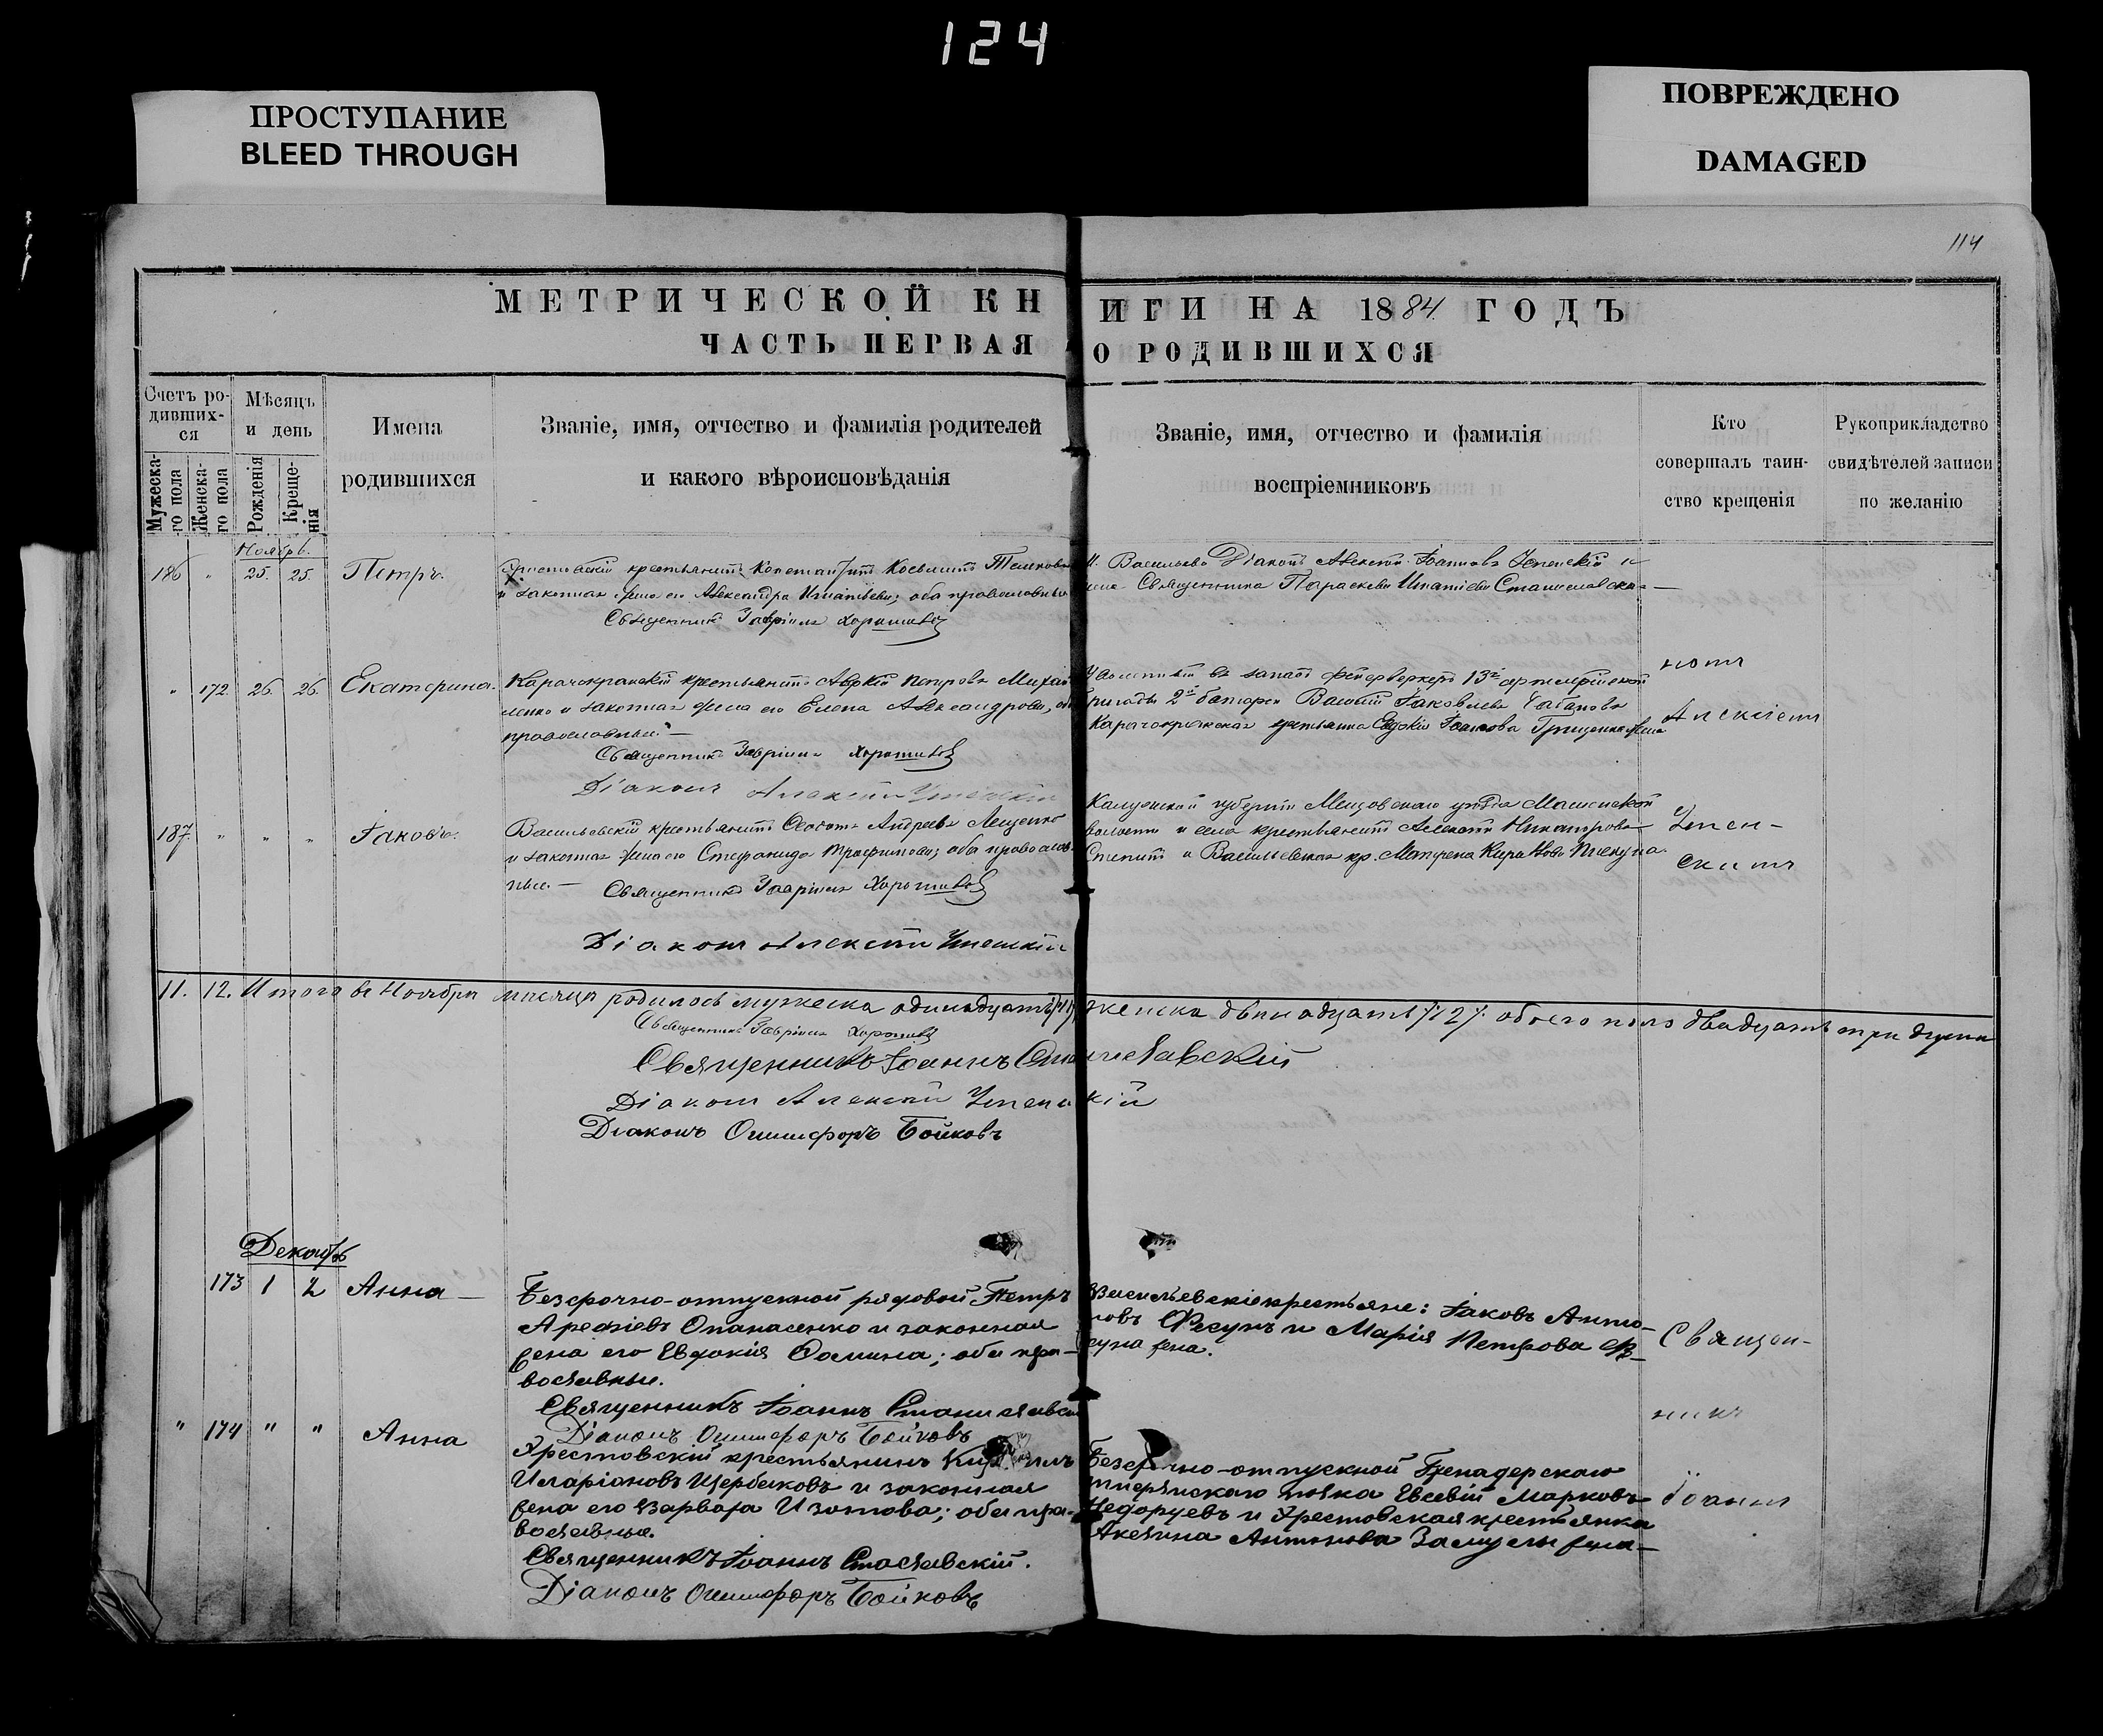 124
ПРОСТУПАНИЕ
BLEED THROUGH
ПОВРЕЖДЕНО
DAMAGED
114
МЕТРИЧЕСКОЙ КНИГИ НА 1884 ГОДЪ
ЧАСТЬ ПЕРВАЯ О РОДИВШИХСЯ
Счетъ родивших-
ся
Мужеска-
го пола
Женска-
го пола
Мѣсяцъ
и день
Рожденія
Креще-
нія
Имена
родившихся
Званіе, имя, отчество и фамилія родителей
и какого вѣроисповѣданія
Званіе, имя, отчество и фамилія
воспріемниковъ
Кто
совершалъ таин-
ство крещенія
Рукоприкладство
свидѣтелей записи
по желанію
Ноябрь.
186 " 25. 25. Петръ.
крестьянинъ Константинъ
и законная жена его Александра Игнатьева; оба православные
Священникъ Гавріилъ
С. Васильевки Діаконъ Алексій Іоанновъ Успенскій и
жена Священника Параскева Игнатіева Станиславская
" 172. 26. 26. Екатерина.
Карачекракскій крестьянинъ Авркій Петровъ Михай
ленко и законная жена его Елена Александрова, оба
православные.
Священникъ Гавріилъ
Діаконъ Алексій Успенскій
Уволенный въ запасъ фейерверкеръ 13й артиллерійской
бригады 2й батареи Василій Іаковлевъ
Карачекракская крестьянка Евдокія Іоаннова Грищенкова
187. " " " Іаковъ.
Васильевскій крестьянинъ Ѳеодотъ Андреевъ Лещенко
и законная жена его Стефанида Трофимова; оба православ-
ные.
Священникъ Гавріилъ
Діаконъ Алексій Успенскій
Калужской губерніи Мещовскаго уѣзда
волости и села крестьянинъ Алексѣй Никаноровъ
и Васильевская кр. Матрена Кириллова
Діа-
конъ
Алексій
Успен-
скій
11. 12. Итого въ Ноябрѣ мѣсяцѣ родилось мужеска одинадцать /11/ женска двѣнадцать /12/. обоего пола двадцать три души
Священникъ Гавріилъ
Священникъ Іоаннъ Станиславскій
Діаконъ Алексій Успенскій
Діаконъ Онисифоръ Бойковъ
Декабрь
173 1 2 Анна
Безсрочно-отпускной рядовой Петръ
Арефіевъ Опанасенко и законная
жена его Евдокія Ѳомина; оба пра-
вославные.
Священникъ Іоаннъ Станиславскій
Діаконъ Онисифоръ Бойковъ
Васильевскіе крестьяне: Іаковъ Анто-
новъ Фесунъ и Марія Петрова Фе-
суна жена.
Священ-
никъ
Іоаннъ
" 174 " " Анна
Хрестовскій крестьянинъ Кириллъ
Иларіоновъ Щербаковъ и законная
жена его Варвара Изотова; оба пра-
вославные.
Священникъ Іоаннъ Станиславскій.
Діаконъ Онисифоръ Бойковъ
Безсрочно-отпускной Гренадерскаго
полка Евсевій Марковъ
Недоруевъ и Хрестовская крестьянка
Акелина Антонова жена